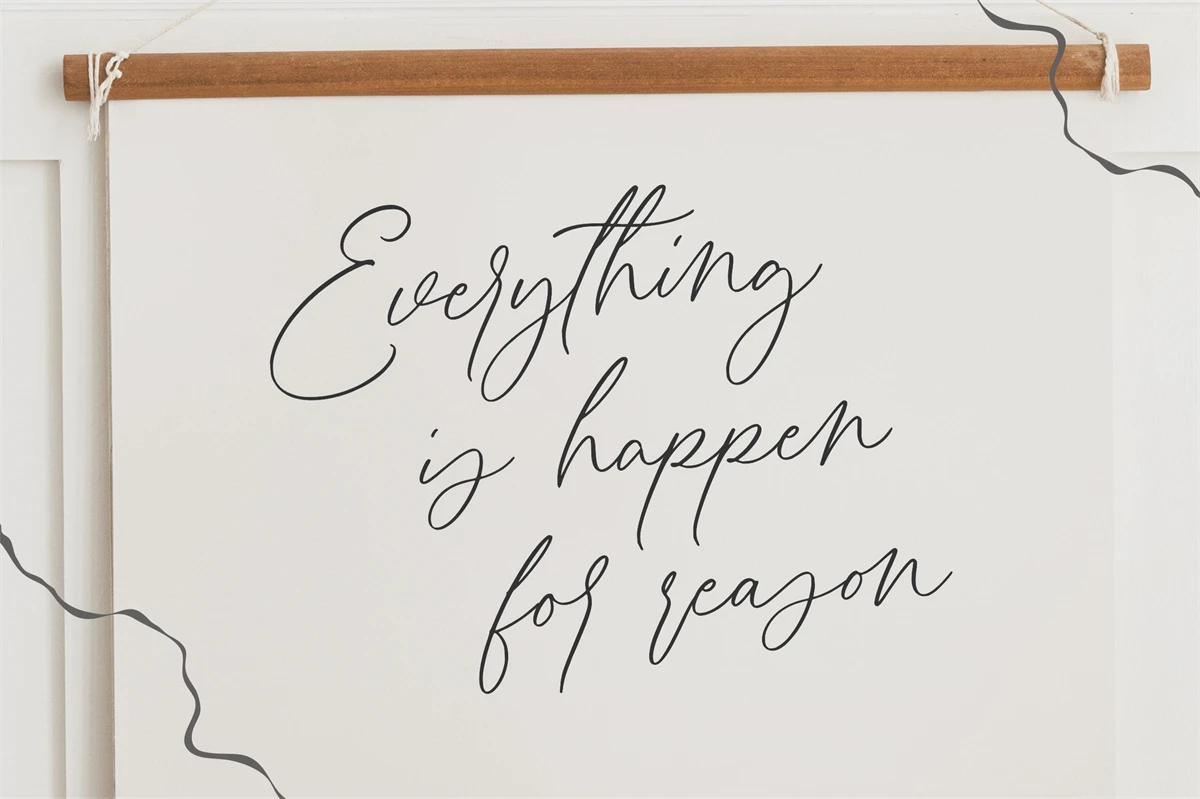 Everything
is happen
for reason